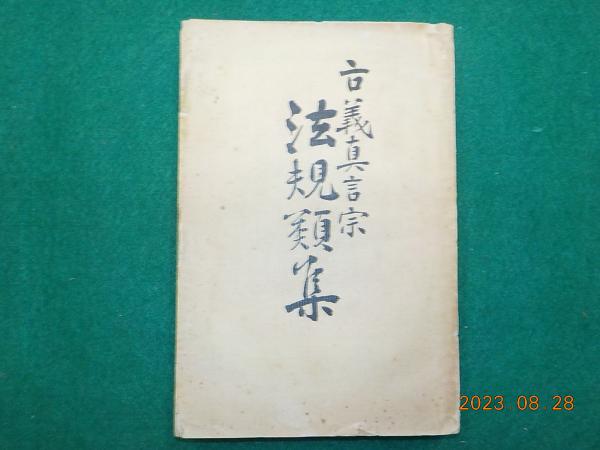 古義真言宗
法規類集
2023.08.28